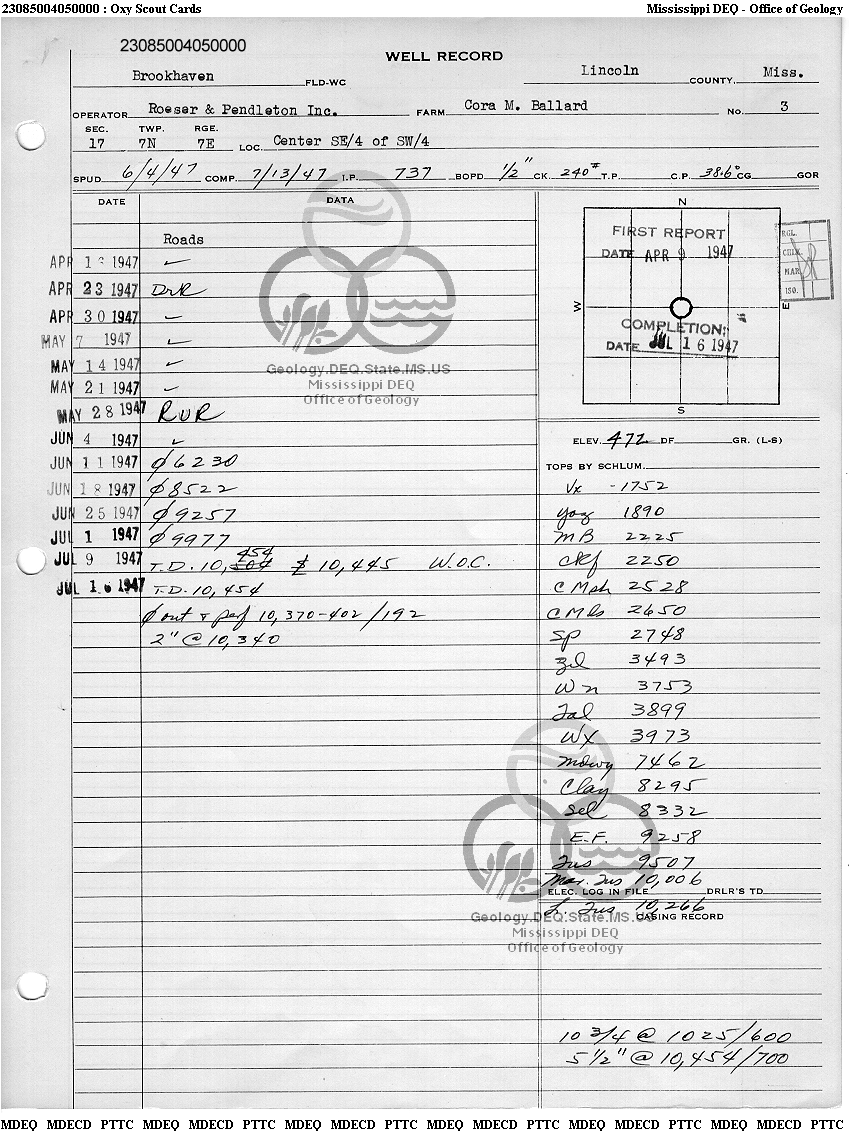 23085004050000 : Oxy Scout Cards Mississippi DEQ - Office of Geology
23085004050000
WELL RECORD
Brookhaven FLD-WC Lincoln COUNTY, Miss.
OPERATOR Roeser & Pendleton Inc. FARM Cora M. Ballard No. 3
SEC. TWP. RGE.
17 7N 7E LOC. Center SE/4 of SW/4
SPUD 6/4/47 COMP. 7/13/47 I.P. 737 BOPD 1/2" CK 240# T.P. C.P. 38.6° CG GOR
DATE DATA
Roads
APR 1 1947 ✓
APR 23 1947 DrR
APR 30 1947 ✓
MAY 7 1947 ✓
MAY 14 1947 ✓
MAY 21 1947 ✓
MAY 28 1947 RUR
JUN 4 1947 ✓
JUN 11 1947 ∅6230
JUN 18 1947 ∅8522
JUN 25 1947 ∅9257
JUL 1 1947 ∅9977
JUL 9 1947 T.D. 10,454 10,445 W.O.C.
JUL 16 1947 T.D. 10,454
∅ out & perf 10,370-402/192
2" @ 10,340
N
W
E
S
FIRST REPORT
DATE APR 9 1947
COMPLETION:
DATE JUL 16 1947
RGL.
CHK.
MAR.
ISO.
ELEV. 472 DF GR. (L-S)
TOPS BY SCHLUM.
Vx -1752
Yaz 1890
MB 2225
Ckf 2250
C Mph 2528
C Mls 2650
Sp 2748
Zil 3493
Wn 3753
Tal 3899
WX 3973
Mdwy 7462
Clay 8295
Sel 8332
E.F. 9258
Tus 9507
Mar. Tus 10,006
ELEC. LOG IN FILE DRLR'S TD
L. Tus 10,266
CASING RECORD
10 3/4 @ 1025/600
5 1/2" @ 10,454/700
Geology.DEQ.State.MS.US
Mississippi DEQ
Office of Geology
Geology.DEQ.State.MS.US
Mississippi DEQ
Office of Geology
MDEQ MDECD PTTC MDEQ MDECD PTTC MDEQ MDECD PTTC MDEQ MDECD PTTC MDEQ MDECD PTTC MDEQ MDECD PTTC